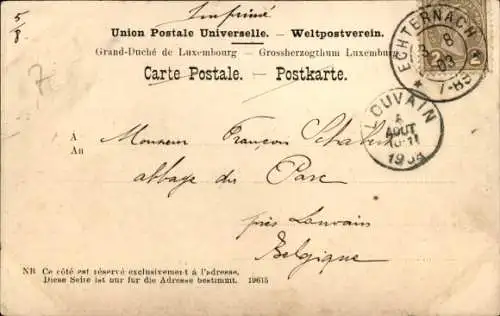 5/8
Imprimé
Union Postale Universelle. - Weltpostverein.
Grand-Duché de Luxembourg - Grossherzogthum Luxemburg
Carte Postale. - Postkarte.
ECHTERNACH
8
03
2 2
LOUVAIN
AOUT
7
À
An
Monsieur François
abbaye du Parc
près Louvain
Belgique
NB Ce côté est réservé exclusivement à l'adresse.
Diese Seite ist nur für die Adresse bestimmt. 19615